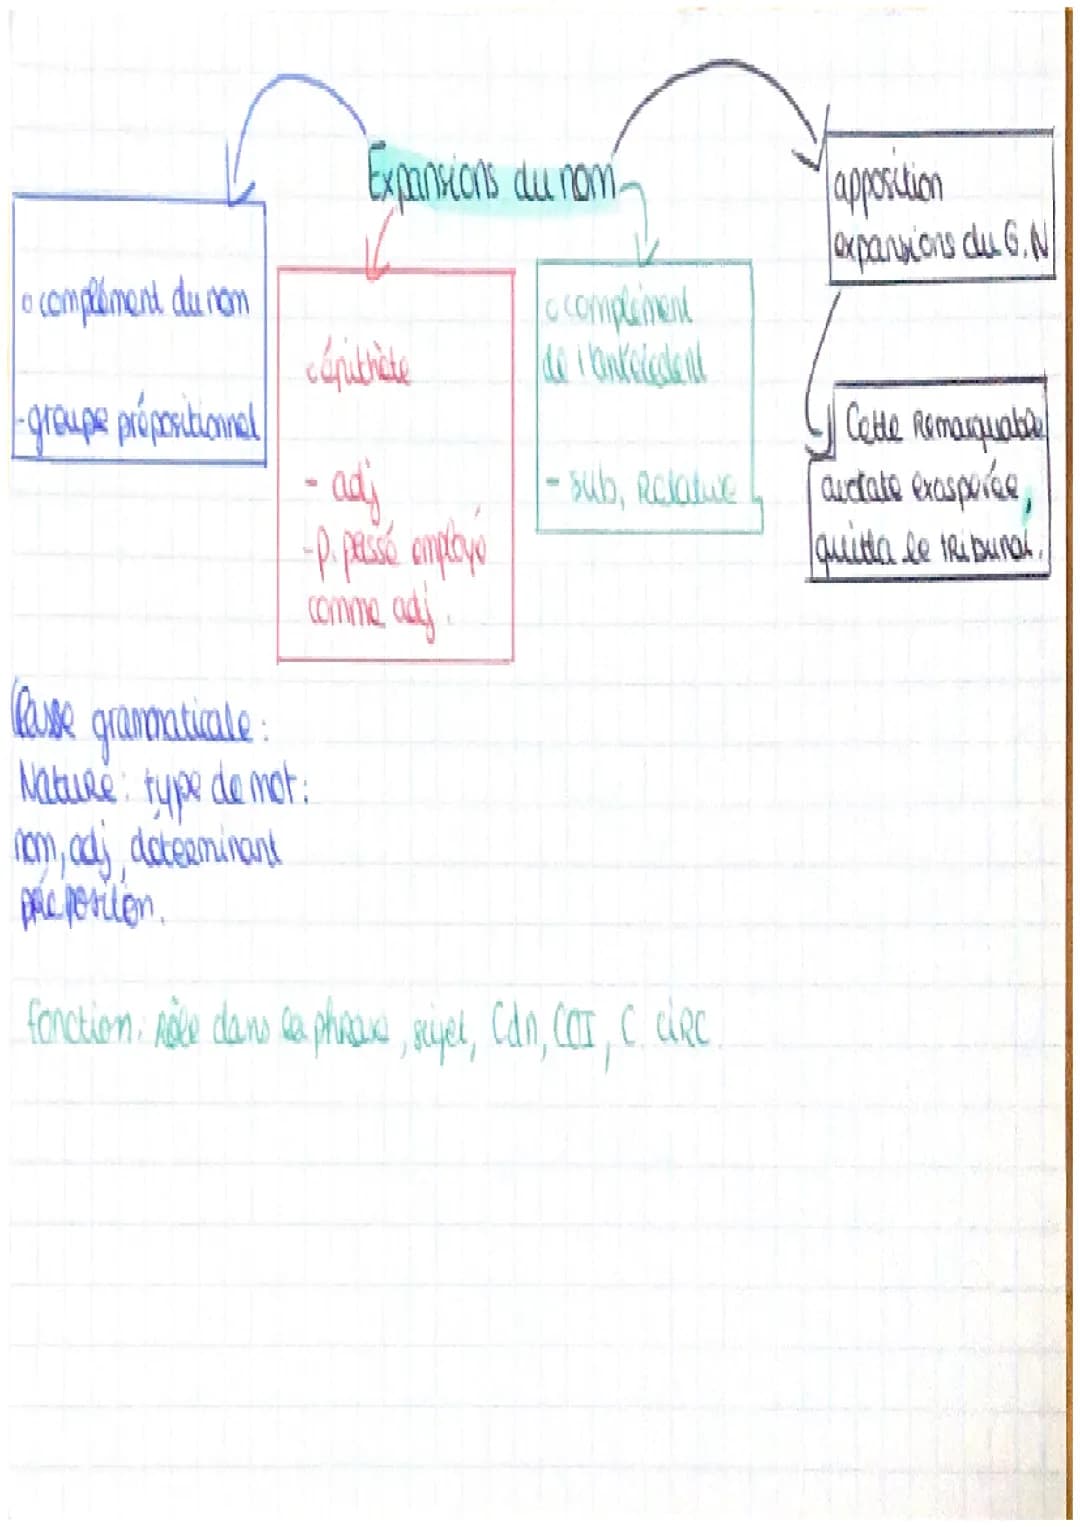 Expansions du nom
o complément du nom
-groupe prépositionnel
o épithète
- adj
-p. passé employé
comme adj.
o complément
de l'antécédent
- sub, Relative
apposition
expansions du G.N
Cette Remarquable
exasperée,
quitta le tribunal.
grammaticale:
Nature: type de mot:
nom, adj, déterminant
préposition.
fonction: Rôle dans la phrase, sujet, Cdn, COI, C. CIRC